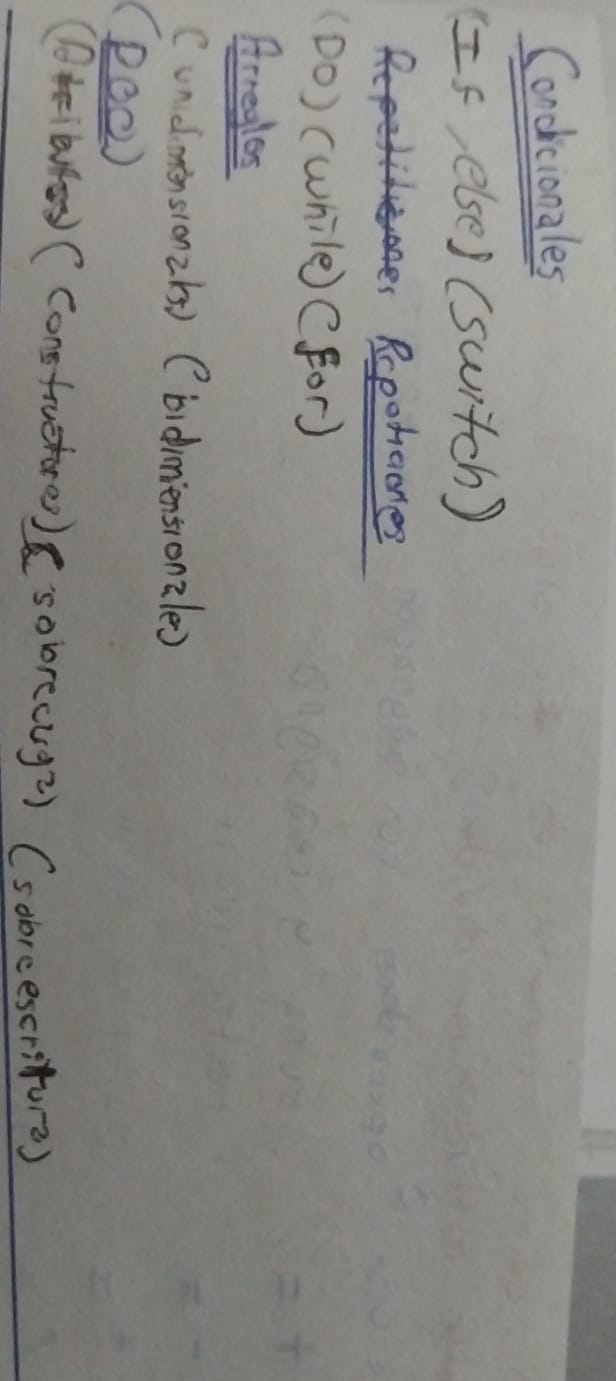 Condicionales
(If, else) (switch)
Repeticiones Repeticiones
(DO) (while) (For)
Arreglos
(unidimensionales) (bidimensionales)
(POO)
(Atributos) (constructores) (sobrecarga) (sobreescritura)